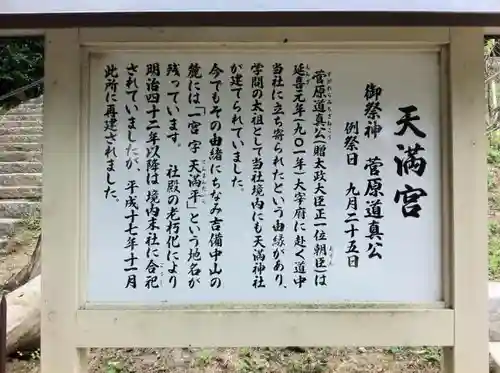 天満宮
御祭神　菅原道真公
例祭日　九月二十五日
菅原道真公(贈太政大臣正一位朝臣)は
延喜元年(九〇一年)大宰府に赴く道中
当社に立ち寄られたという由縁があり、
学問の太祖として当社境内にも天満神社
が建てられていました。
今でもその由緒にちなみ吉備中山の
麓には「一宮 字 天満平」という地名が
残っています。　社殿の老朽化により
明治四十二年以降は境内末社に合祀
されていましたが、平成十七年十一月
此所に再建されました。